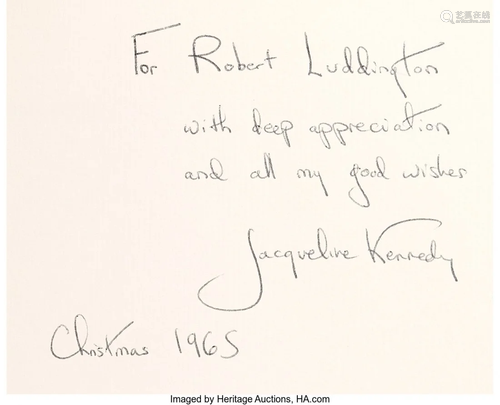 艺狐在线
For Robert Luddington
with deep appreciation
and all my good wishes
Jacqueline Kennedy
Christmas 1965
Imaged by Heritage Auctions, HA.com